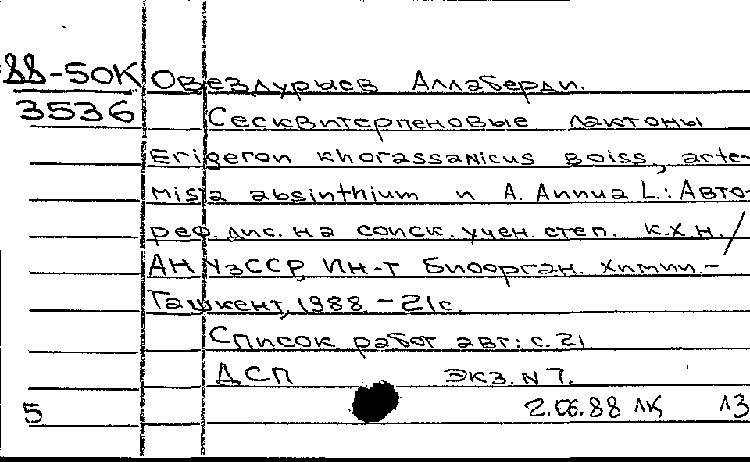 88-50К Овездурыев Аллаберди.
3536 Сесквитерпеновые лактоны
Erigeron khorassanicus Boiss, arte-
misia absinthium и A. Annua L.: Авто-
реф. дис. на соиск. учен. степ. к.х.н. /
АН УзССР, Ин-т биоорган. химии. –
Ташкент, 1988. – 21с.
Список работ авт: с. 21
ДСП экз. N 7.
5 2.06.88 ЛК ЛЗ